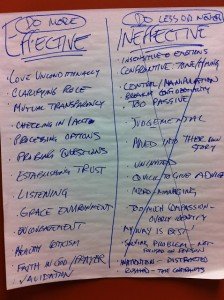 DO MORE
EFFECTIVE
• LOVE UNCONDITIONALLY
• CLARIFYING ROLE
• MUTUAL TRANSPARENCY
• CHECKING IN
• PROCESSING OPTIONS
• PROBING QUESTIONS
• ESTABLISHING TRUST
• LISTENING
• GRACE ENVIRONMENT
• ENCOURAGEMENT
• HEALTHY
• FAITH IN GOD / PRAYER
• VALIDATION
DO LESS OR NEVER
INEFFECTIVE
INSENSITIVE TO EMOTIONS
CONFRONTIVE
CONTROL/MANIPULATION
BREAKING CONFIDENTIALITY
• TOO PASSIVE
• JUDGEMENTAL
• THEIR OWN
STORY
• QUICK TO GIVE ADVICE
• TOO MUCH COMPASSION -
OVERLY IDENTIFY
• MY WAY IS BEST
PROBLEM - NOT
FOCUSED ON PERSON
• DISTRACTED